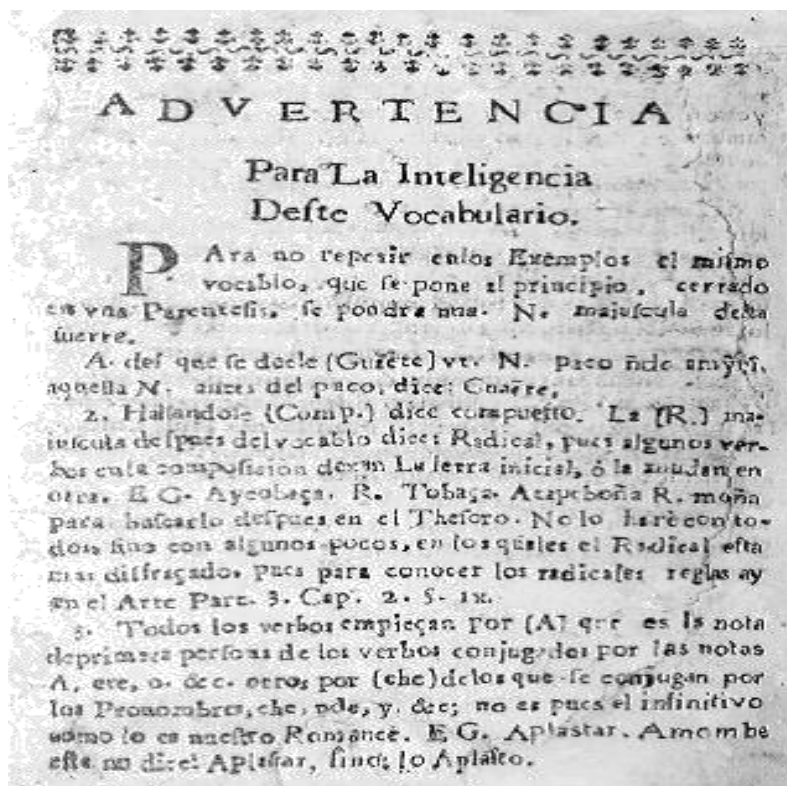 ADVERTENCIA
Para La Inteligencia
Deste Vocabulario.
PAra no repetir enlos Exemplos el mismo
vocablo, que se pone al principio, cerrado
en vna Parentesis, se pondra vna. N. majuscula desta
suerte.
A. que se decle (Guĩẽte) vt. N. paco ñde amỹrĩ,
aquella N. antes del paco, dice: Guaẽte,
2. Hallandose (Comp.) dice compuesto. La (R.) ma-
iuscula despues del vocablo dice: Radical, pues algunos ver-
bos enla composision dexan La letra inicial, ò la mudan en
otra. E G. Aycobaça. R. Tobaça. R. moña
para buscarlo despues en el Thesoro. No lo harè con to-
dos, sino con algunos pocos, en los quales el Radical esta
mas disfraçado, pues para conocer los radicales reglas ay
en el Arte Part. 3. Cap. 2. §. IX.
3. Todos los verbos empieçan por (A) que es la nota
deprimera persona de los verbos conjugados por las notas
A, ere, o. &c. otros por (che) delos que se conjugan por
los Pronombres, che, nde, y. &c; no es pues el infinitivo
como lo es nuestro Romance. E G. Aplastar. Amombe
este no dice: Aplastar, sino: lo Aplasto.